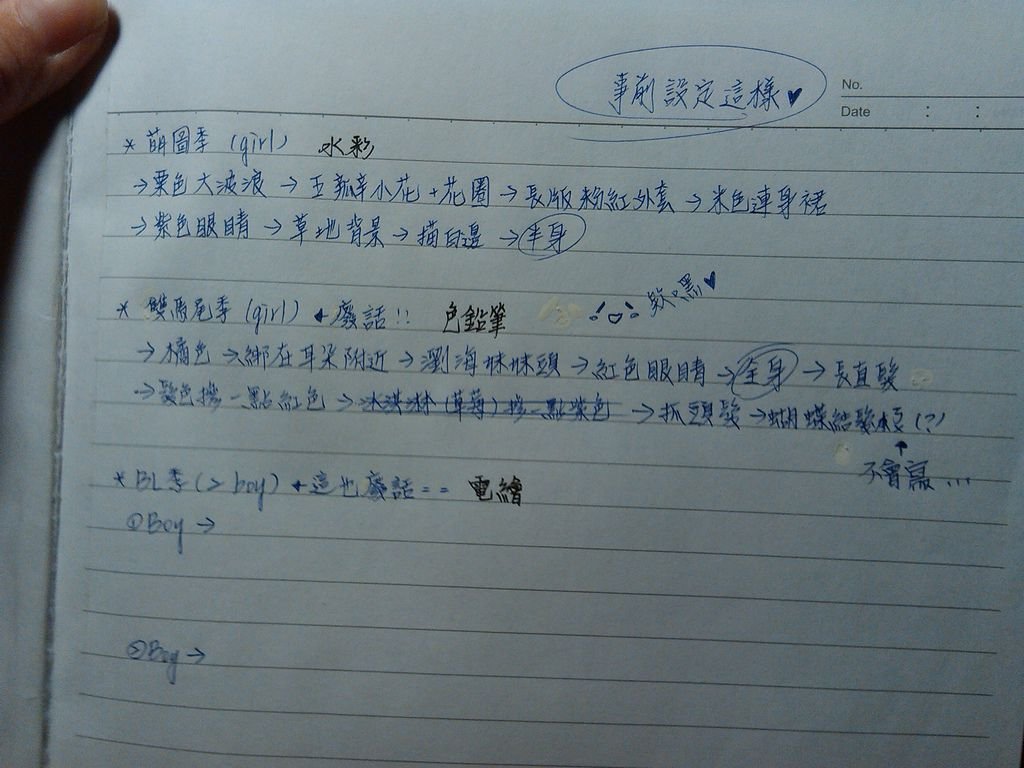 事前設定這樣♥
No.
Date : :
* 萌圖季 (girl) 水彩
→栗色大波浪 → 五瓣小花+花圈 → 長版粉紅外套 → 米色連身裙
→紫色眼睛 → 草地背景 → 描白邊 → 半身
* 雙馬尾季 (girl) ← 廢話!! 色鉛筆 嘿♥
→橘色 →綁在耳朵附近 → 瀏海妹妹頭 → 紅色眼睛 → 全身 → 長直髮
→髮色摻一點紅色 → 冰淇淋(草莓)摻一點紫色 → 抓頭髮 → 蝴蝶結髮 (?)
不會寫...
* BL季 (2 boy) ← 這也廢話== 電繪
①Boy →
②Boy →